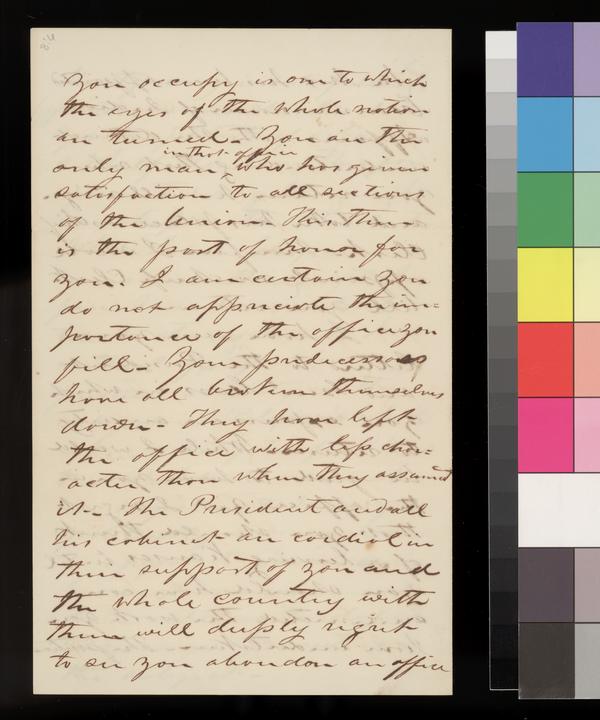 You occupy is one to which
the eyes of the whole nation
are turned - You are the
in that office
only man, who has given
satisfaction to all sections
of the Union - This then
is the post of honor for
you. I am certain you
do not appreciate the im=
portance of the office you
fill - Your predecessors
have all broken themselves
down - They have left
the office with less char=
acter than when they assumed
it - The President and all
his cabinet are cordial in
their support of you and
the whole country with
them will deeply regret
to see you abandon an office